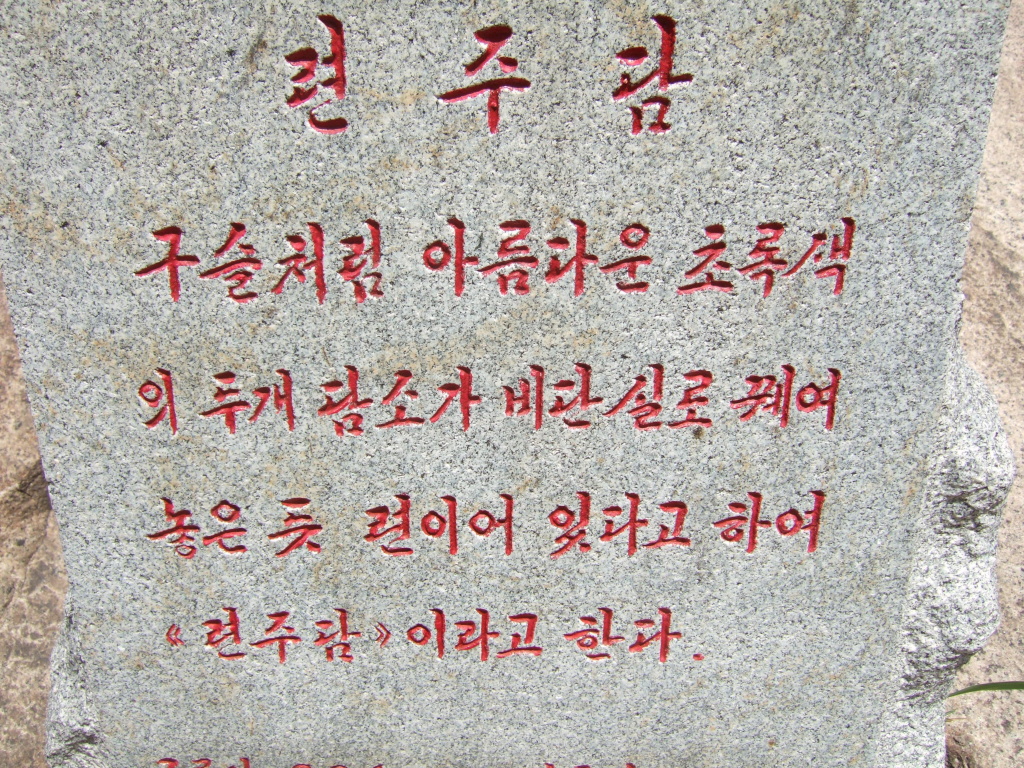 련 주 담
구슬처럼 아름다운 초록색
의 두개 담소가 비단실로 꿰여
놓은 듯 련이어 있다고 하여
《련주담》이라고 한다.